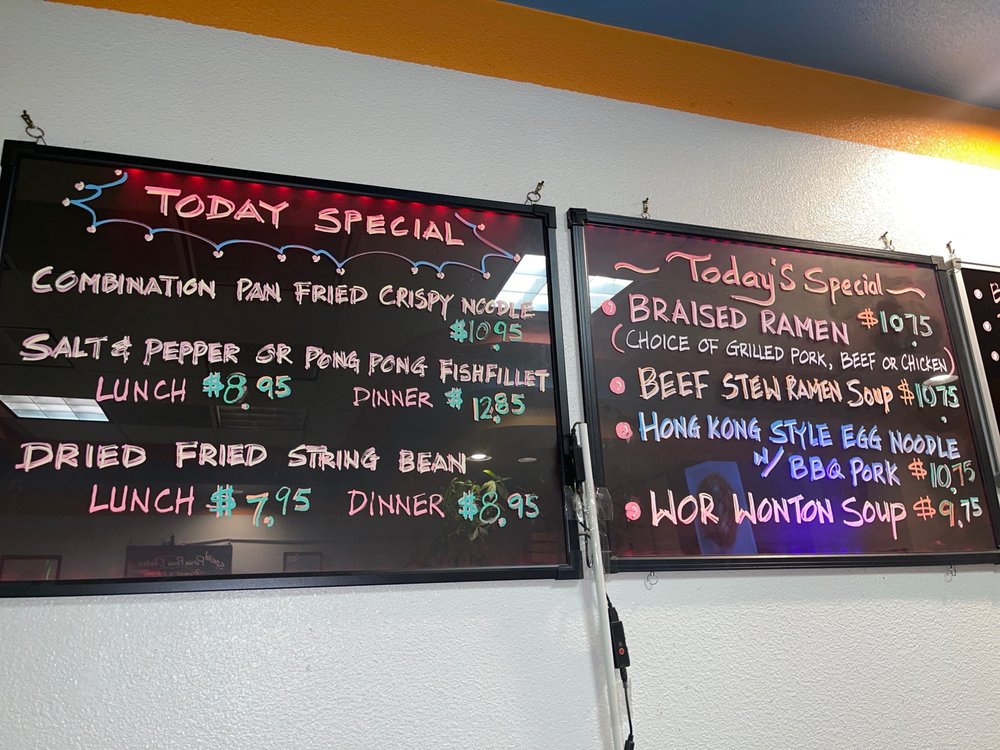 TODAY SPECIAL
COMBINATION PAN FRIED CRISPY NOODLE
$10.95
SALT & PEPPER OR PONG PONG FISHFILLET
LUNCH $8.95 DINNER $12.85
DRIED FRIED STRING BEAN
LUNCH $7.95 DINNER $8.95
Today's Special
BRAISED RAMEN $10.75
(CHOICE OF GRILLED PORK, BEEF OR CHICKEN)
BEEF STEW RAMEN SOUP $10.75
HONG KONG STYLE EGG NOODLE
W/ BBQ PORK $10.75
WOR WONTON SOUP $9.75